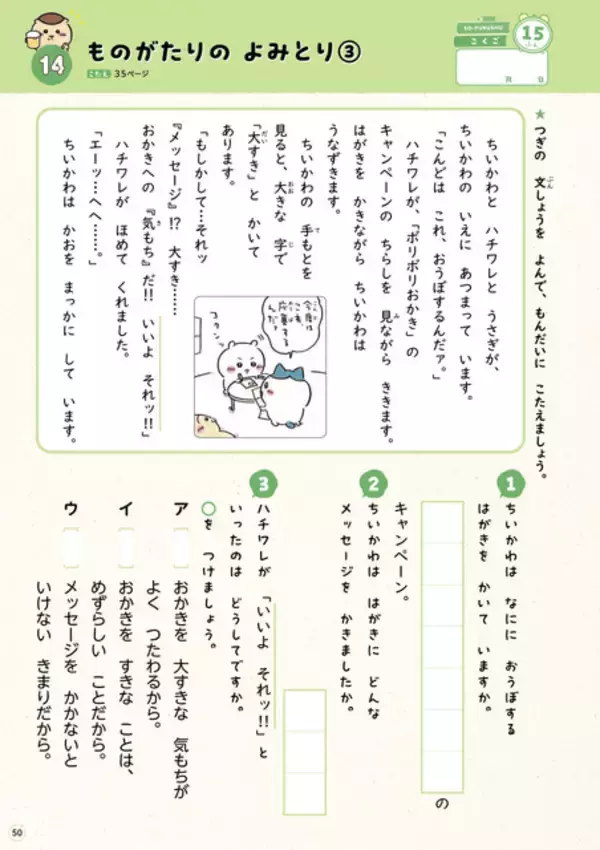 14
ものがたりの よみとり③
こたえ 35ページ
こくご
15
ふん
月 日
★つぎの 文しょうを よんで、もんだいに こたえましょう。
ちいかわと ハチワレと うさぎが、
ちいかわの いえに あつまって います。
「こんどは これ、おうぼするんだァ。」
ハチワレが、「ポリポリおかき」の
キャンペーンの ちらしを 見ながら ききます。
はがきを かきながら ちいかわは
うなずきます。
ちいかわの 手もとを
見ると、大きな 字で
「大すき」と かいて
あります。
「もしかして…それッ
『メッセージ』!? 大すき……
おかきへの 『気もち』だ!! いいよ それッ!!」
ハチワレが ほめて くれました。
「エーッ…へへ……。」
ちいかわは かおを まっかに して います。
今度は
これ
応募する
んだァ
コクン
1
ちいかわは なにに おうぼする
はがきを かいて いますか。
の
キャンペーン。
2
ちいかわは はがきに どんな
メッセージを かきましたか。
3
ハチワレが 「いいよ それッ!!」と
いったのは どうしてですか。
○を つけましょう。
ア おかきを 大すきな 気もちが
よく つたわるから。
イ おかきを すきな ことは、
めずらしい ことだから。
ウ メッセージを かかないと
いけない きまりだから。
50